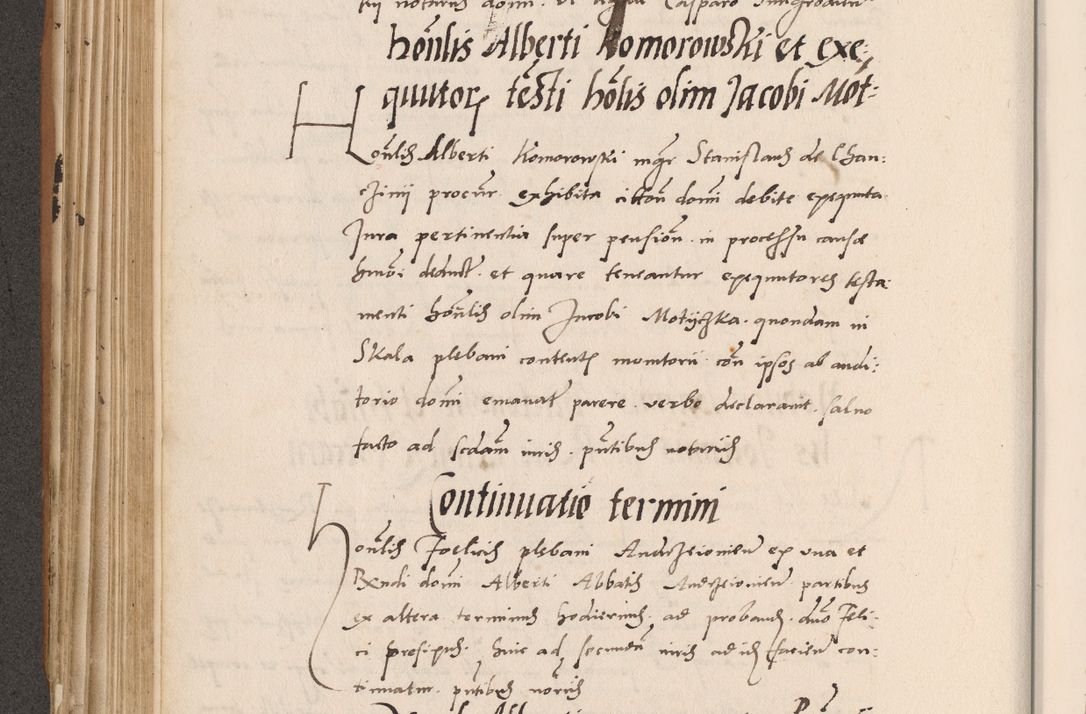 hon̄lis Alberti Komorowski et exe:
quutor testi hon̄lis olim Jacobi Mot:
Hon̄lis Alberti Komorowski mgr Stanislaus de Chan:
czinij procur exhibita citon domi debite exequuta
Jura pertinentia super pension in processu causæ
hmōi deduct et quare teneantur exequutores testa:
menti hon̄lis olim Jacobi Motyczka quondam in
Skala plebani content monitorii con ipsos ab audi:
torio domi emanat parere verbo declaravit salvo
facto ad scdam iuris pn̄tibus notariis
Continuatio termini
Hon̄lis Foelicis plebani Andrzeiovien ex una et
Rndi domi Alberti Abbatis Andrzeiovien partibus
ex altera terminus hodiernus ad proband duo Feli:
ci prefixus hinc ad secunda iuris ad id faciend con:
tinuatur pn̄tibus notariis